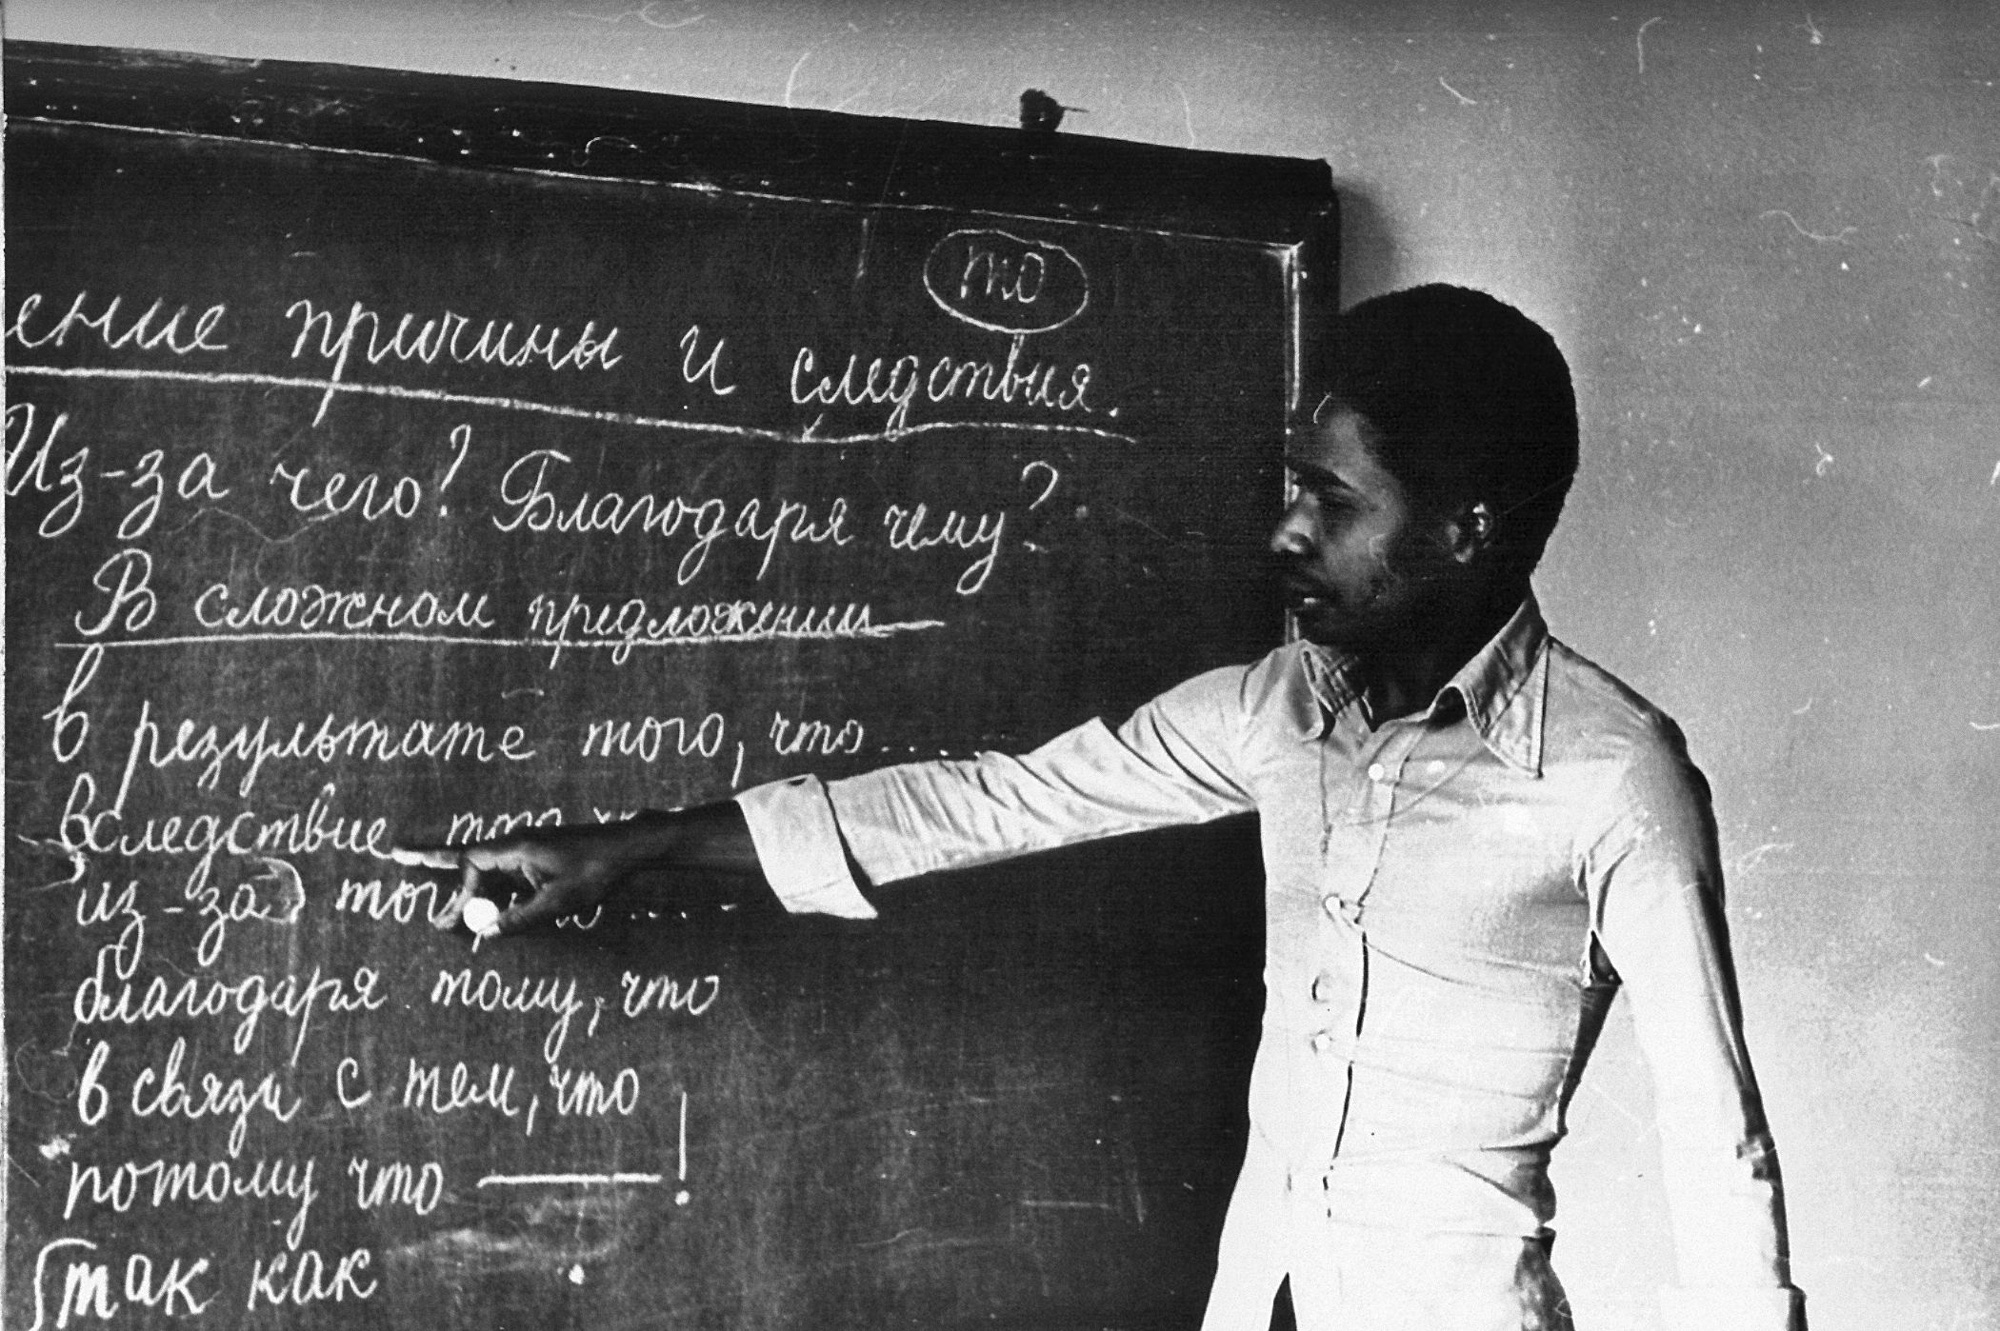 то
ение причины и следствия.
Из-за чего? Благодаря чему?
В сложном предложении
в результате того, что.....
вследствие того
из-за того
благодаря тому, что
в связи с тем, что
потому что — !
так как